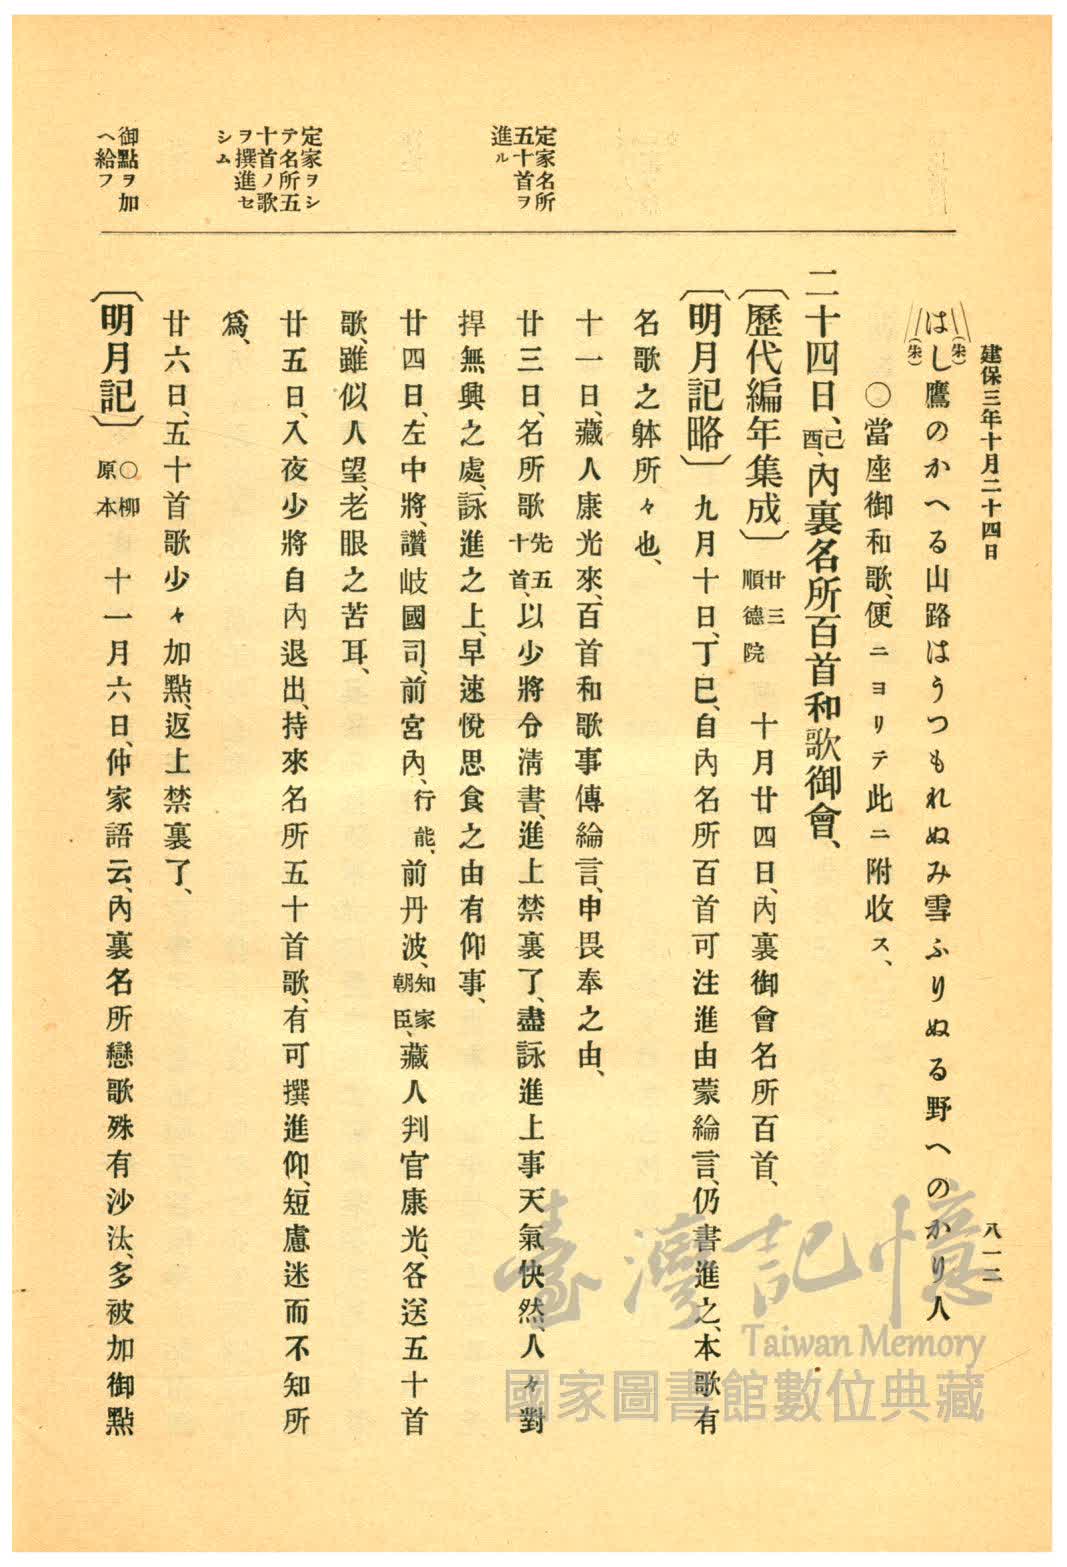 建保三年十月二十四日
八一二
はし鷹のかへる山路はうつもれぬみ雪ふりぬる野へのかり人
(朱)
(朱)
〇當座御和歌、便ニヨリテ此ニ附收ス、
二十四日、己酉、內裏名所百首和歌御會、
〔歷代編年集成〕廿三順德院 十月廿四日、內裏御會名所百首、
〔明月記略〕九月十日、丁巳、自內名所百首可注進由蒙綸言、仍書進之、本歌有
名歌之躰所々也、
十一日、藏人康光來、百首和歌事傳綸言、申畏奉之由、
廿三日、名所歌先五十首、以少將令淸書、進上禁裏了、盡詠進上事天氣快然、人々對
捍無興之處、詠進之上、早速悅思食之由有仰事、
廿四日、左中將、讚岐國司、前宮內、行能、前丹波、知家朝臣、藏人判官康光、各送五十首
歌、雖似人望、老眼之苦耳、
廿五日、入夜少將自內退出、持來名所五十首歌、有可撰進仰、短慮迷而不知所
爲、
廿六日、五十首歌少々加點、返上禁裏了、
〔明月記〕〇柳原本 十一月六日、仲家語云、內裏名所戀歌殊有沙汰、多被加御點
定家名所
五十首ヲ
進ル
定家ヲシ
テ名所五
十首ノ歌
ヲ撰進セ
シム
御點ヲ加
ヘ給フ
臺灣記憶
Taiwan Memory
國家圖書館數位典藏